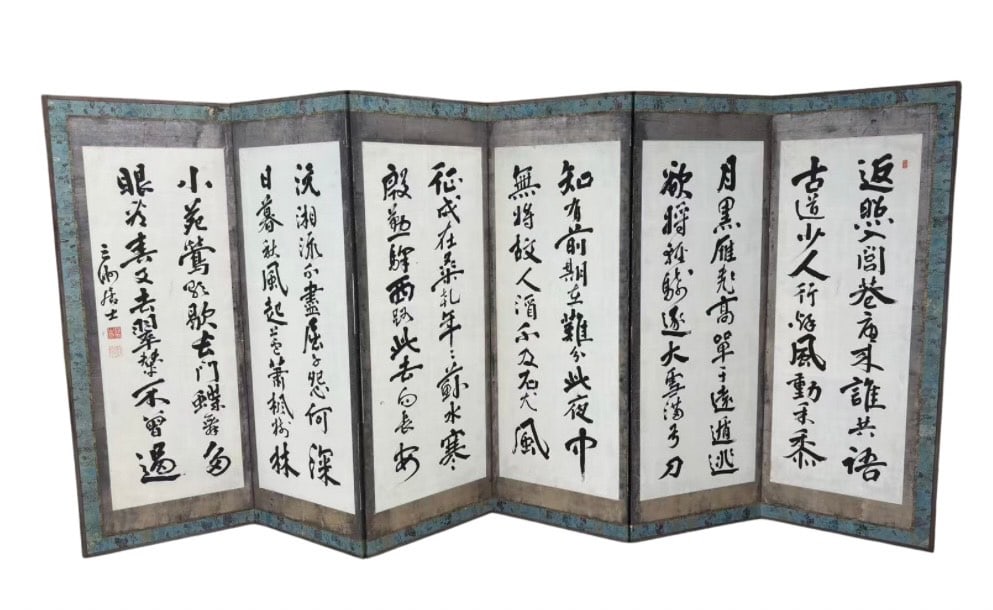 返照入閭巷憂來誰共語
古道少人行秋風動禾黍
月黑雁飛高單于遠遁逃
欲將輕騎逐大雪滿弓刀
知有前期在難分此夜中
無將故人酒不及石尤風
征戍在桑乾年〻薊水寒
殷勤驛西路此去向長安
沅湘流不盡屈子怨何深
日暮秋風起蕭蕭楓樹林
小苑鶯歌歇長門蝶舞多
眼看春又去翠輦不曾過
三洲居士